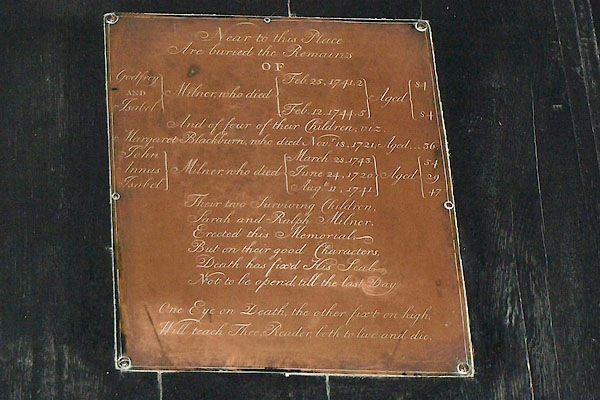 Near to this Place
Are buried the Remains
OF
Godfrey AND Isabel } Milner, who died { Feb. 25, 1741.2 Feb. 12, 1744.5 } Aged { 84 84
And of four of their Children, viz.
Margaret Blackburn, who died Nov.r 18, 1721, Aged ... 36,
John Innus Isabel } Milner, who died { March 28, 1743 June 24, 1720 Aug.t 11, 1741 } Aged { 54 29 47
Their two Surviving Children,
Sarah and Ralph Milner,
Erected this Memorial.
But on their good Characters,
Death has fix'd His Seal,
Not to be open'd, till the last Day.
One Eye on Death, the other fix't on high,
Will teach Thee, Reader, both to live and die.